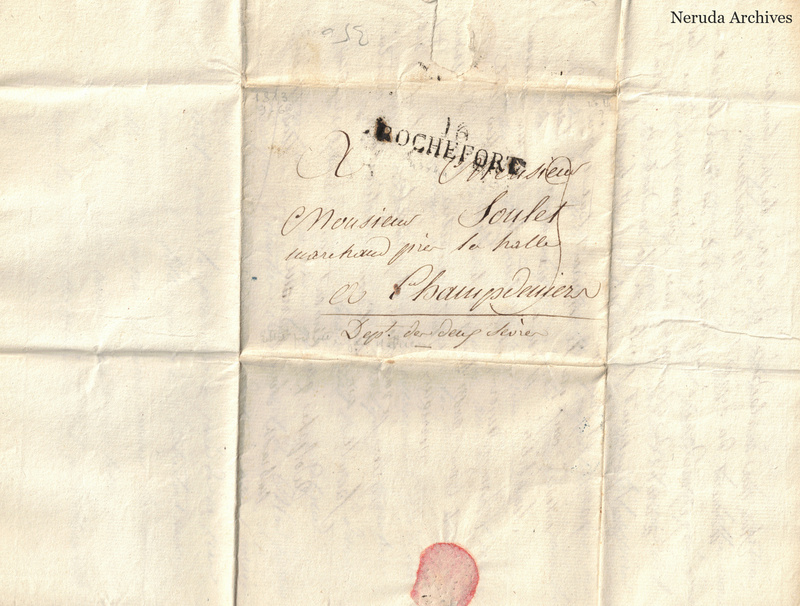 Neruda Archives
350
1813
16
ROCHEFORT
A Monsieur
Monsieur Soulet
marchand près la halle
a Champdeniers
Dept. des deux Sèvres